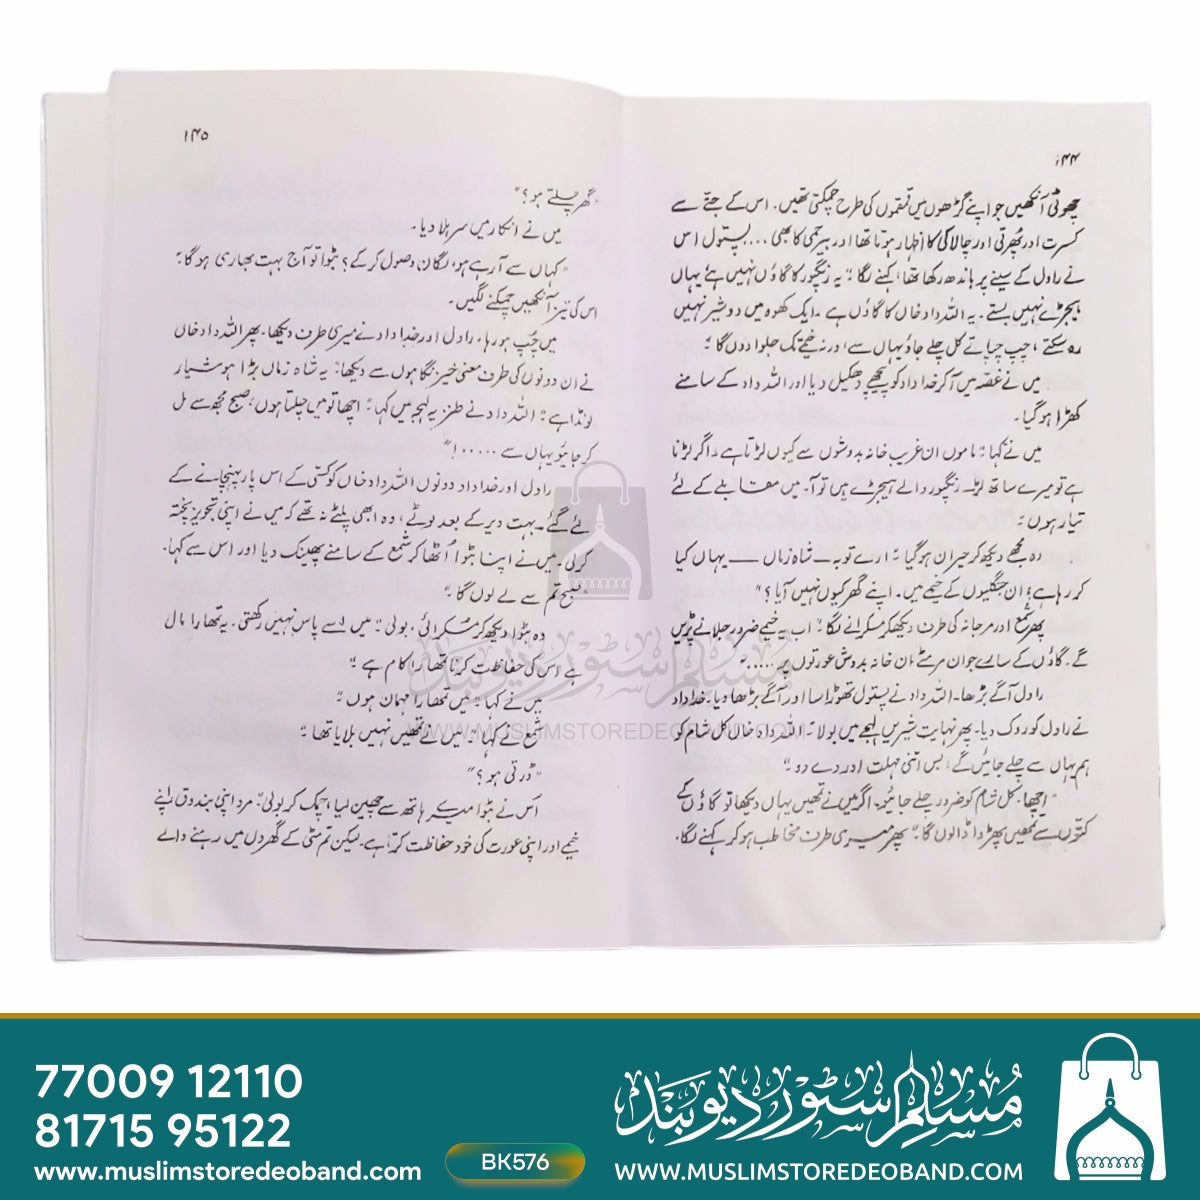 ۱۴۴
چھوٹی آنکھیں جو اپنے گڑھوں میں قمقموں کی طرح چمکتی تھیں۔ اس کے جثے سے
کسرت اور پھرتی اور چالاکی کا اظہار ہوتا تھا اور بیرحمی کا بھی .... پستول اس
نے راول کے سینے پر باندھ رکھا تھا، کہنے لگا: "یہ رنگپور کا گاؤں نہیں ہے یہاں
ہیجڑے نہیں بستے۔ یہ اللہ داد خاں کا گاؤں ہے۔ ایک کھوہ میں دو شیر نہیں
رہ سکتے، چپ چپاتے کل چلے جاؤ یہاں سے، ورنہ خیمے تک جلوا دوں گا۔"
میں نے غصہ میں آکر خداداد کو پیچھے دھکیل دیا اور اللہ داد کے سامنے
کھڑا ہوگیا۔
میں نے کہا: "ماموں ان غریب خانہ بدوشوں سے کیوں لڑتا ہے، اگر لڑنا
ہے تو میرے ساتھ لڑ۔ رنگپور والے ہیجڑے ہیں تو آ۔ میں مقابلے کے لئے
تیار ہوں۔"
وہ مجھے دیکھ کر حیران ہوگیا "ارے توبہ۔ شاہ زماں — یہاں کیا
کر رہا ہے؛ ان جنگلیوں کے خیمے میں۔ اپنے گھر کیوں نہیں آیا؟"
پھر شمع اور مرجانہ کی طرف دیکھ کر مسکرانے لگا "اب یہ خیمے ضرور جلانے پڑیں
گے۔ گاؤں کے سارے جوان مر مٹے ان خانہ بدوش عورتوں پر ....."
راول آگے بڑھا۔ اللہ داد نے پستول تھوڑا سا اور آگے بڑھا دیا۔ خداداد
نے راول کو روک دیا۔ پھر نہایت شیریں لہجے میں بولا "اللہ داد خاں کل شام کو
ہم یہاں سے چلے جائیں گے، بس اتنی مہلت اور دے دو۔"
"اچھا۔ کل شام کو ضرور چلے جائیو۔ اگر میں نے تمھیں یہاں دیکھا تو گاؤں کے
کتوں سے تمھیں پھڑوا ڈالوں گا۔" پھر میری طرف مخاطب ہوکر کہنے لگا۔
۱۴۵
"گھر چلتے ہو؟"
میں نے انکار میں سر ہلا دیا۔
"کہاں سے آرہے ہو، لگان وصول کرکے؟ بٹوا تو آج بہت بھاری ہوگا۔"
اس کی تیز آنکھیں چمکنے لگیں۔
میں چپ ہو رہا۔ راول اور خداداد نے میری طرف دیکھا۔ پھر اللہ داد خاں
نے ان دونوں کی طرف معنی خیز نگاہوں سے دیکھا: "یہ شاہ زماں بڑا ہوشیار
لونڈا ہے"۔ اللہ داد نے طنزیہ لہجہ میں کہا "اچھا تو میں چلتا ہوں؛ صبح مجھ سے مل
کر جائیو یہاں سے .....!"
راول اور خداداد دونوں اللہ داد خاں کو کشتی کے اس پار پہنچانے کے
لئے گئے۔ بہت دیر کے بعد لوٹے، وہ ابھی پلٹے نہ تھے کہ میں نے اپنی تجویز پختہ
کرلی۔ میں نے اپنا بٹوا اُٹھا کر شمع کے سامنے پھینک دیا اور اس سے کہا۔
"صبح تم سے لے لوں گا۔"
وہ بٹوا دیکھ کر مُسکرائی، بولی: "میں اسے پاس نہیں رکھتی۔ یہ تمھارا مال
ہے اس کی حفاظت کرنا تمھارا کام ہے۔"
میں نے کہا "میں تمھارا مہمان ہوں"۔
شمع نے کہا "میں نے تمھیں نہیں بلایا تھا"۔
"ڈرتی ہو؟"
اُس نے بٹوا میرے ہاتھ سے چھین لیا، چمک کر بولی "مرد اپنی بندوق، اپنے
خیمے اور اپنی عورت کی خود حفاظت کرتا ہے۔ لیکن تم مٹی کے گھروں میں رہنے والے
مسلم سٹور دیوبند
WWW.MUSLIMSTOREDEOBAND.COM
77009 12110
81715 95122
www.muslimstoredeoband.com
BK576
مسلم سٹور دیوبند
WWW.MUSLIMSTOREDEOBAND.COM